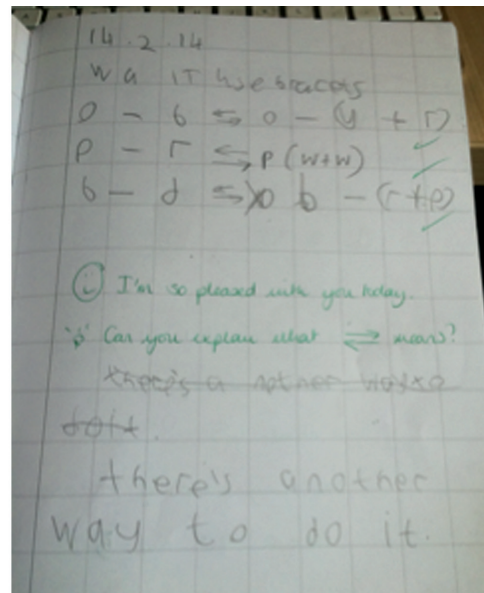 14.2.14
o - 6 ⇆ o - (y + r)
p - r ⇆ p (w+w)
b - d ⇆ b - (r+p)
I'm so pleased with you today.
Can you explain what ⇄ means?
there's a nother way to
do it.
there's another
way to do it.